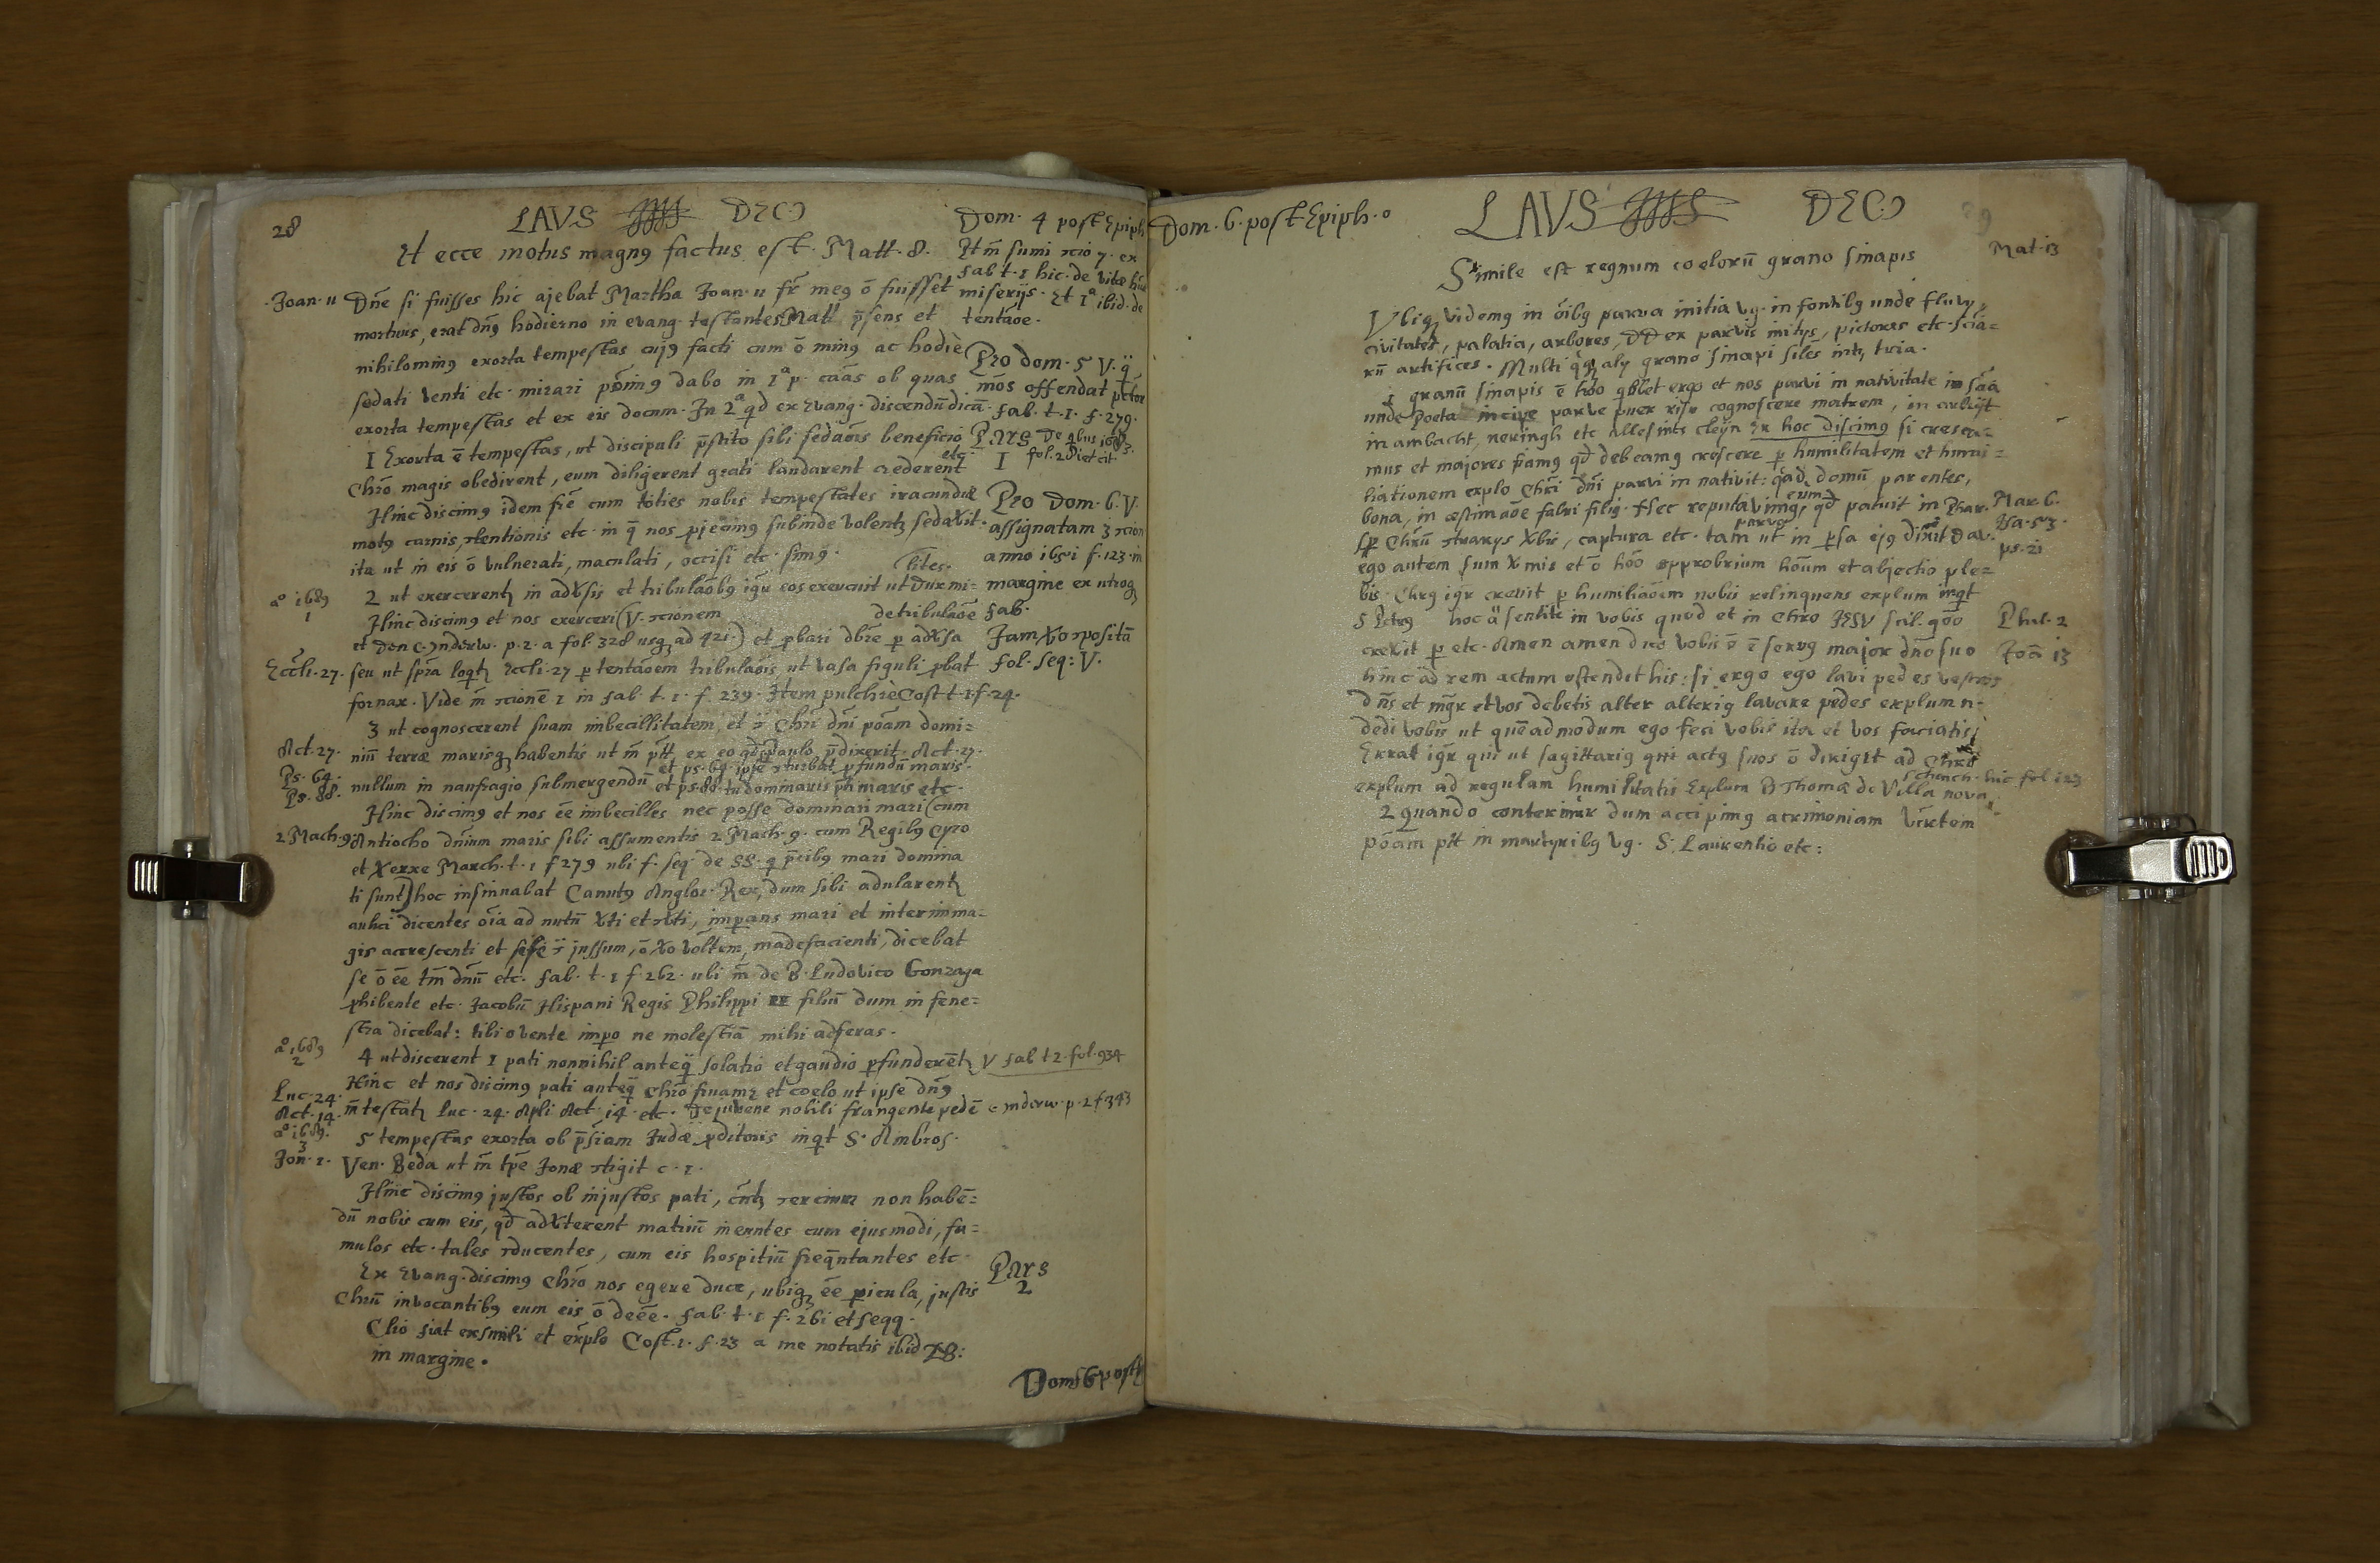 28
LAVS DEO
Dom. 4 post Epiph
Et ecce motus magnꝰ factus est. Matt. 8.
Et m̄ sumi rcio 7. ex
fab t. 1 hic. de vitæ
miserijs. Et 1ª ibid. de
tentãoe.
Joan. 11 Dn̄e si fuisses hic ajebat Martha Joan. 11 fr̄ meꝰ ō fuisset
mortuus, erat dn̄ꝰ hodierno in evang. testante Matt p̄sens et
nihilominꝰ exorta tempestas cujꝰ facti cum ō minꝰ ac hodiè
sedati venti etc. mirari pōimꝰ dabo in 1ª p. cãas ob quas
exorta tempestas et ex eis docum. In 2ª qd ex Evang. discendũ dicã.
Pro dom. 5 V. q̈
mōs offendat
fab. t. 1. f. 279.
Pars
I
I Exorta ē tempestas, ut discipuli p̄stito sibi sedãois beneficio
etc.
Chrō magis obedirent, eum diligerent grati laudarent crederent
Hinc discimꝰ idem fiē cum toties nobis tempestates iracundiæ
motꝰ carnis, rtentionis etc. in q̄ nos pjecimꝰ subinde volentẜ sedavit.
ita ut in eis ō vulnerati, maculati, occisi etc. simꝰ.
Pro Dom. 6. V.
assignatam 3 rcion
anno 1651 f. 123 in
margine ex utroqꝫ
fab.
lites.
aº 1689
1
2 ut exercerentẜ in advsis et tribulaōbꝰ igr̄ eos exercuit ut Dux mi=
Hinc discimꝰ et nos exerceri (V. rcionem de tribulãoe
et Den C. Onderw. p. 2. a fol. 328 usqꝫ ad 421.) et pbari dbr̄e p advsa
Jam vo rposita
fol. seq: V.
Eccli. 27. seu ut spra loqtẜ Eccli. 27 p tentãoem tribulãois, ut vasa figuli pbat
fornax. Vide m̄ rcionē 1 in fab. t. 1. f. 239. Item pulchrè Cost t. 1. f. 24.
3 ut cognoscerent suam imbecillitatem, et r̈ Chr̄i dn̄i põam domi=
Act. 27. niũ terræ marisqꝫ habentis ut m̄ ptt ex eo qd Paulo p̄dixerit. Act. 27.
Ps. 64.
et ps. 64. ipse rturbat pfundũ maris.
Ps. 88. nullum in naufragio submergendũ et ps. 88. tu dominaris ptī maris etc.
Hinc discimꝰ et nos ēe imbecilles nec posse dominari mari (cum
2 Mach. 9 Antiocho dn̄ium maris sibi assumentis 2 Mach. 9. cum Regibꝰ Cyro
et Xerxe March. t. 1 f 279 ubi f. seq. de SS. q p̄cibꝰ mari domina
ti sunt) hoc insinuabat Canutꝰ Anglor. Rex, dum sibi adularentẜ
aulici dicentes oīa ad nutũ
gis accrescenti et sese r̈ jussum, ō vo voltem, madefacienti, dicebat
se ō ēe tm̄ dn̄ũ etc. fab. t. 1 f. 262. ubi m̄ de B. Ludovico Gonzaga
phibente etc. Jacobũ Hispani Regis Philippi filiũ dum in fene=
stra dicebat: tibi o vente impo ne molestiã mihi adferas.
aº 1689
2
4 ut discerent 1 pati nonnihil anteq̄ solatio et gaudio pfunderētẜ
V fab t 2. fol. 934
Hinc et nos discimꝰ pati anteq̄ Chrō fruamꝫ et coelo ut ipse dn̄ꝰ
Luc. 24.
Act. 14. m̄ testatẜ Luc. 24. Apli Act. 14. etc. De juvene nobili frangente pedē
c onderw. p. 2 f 343
aº 1689.
3
5 tempestas exorta ob p̄siam Judæ pditoris inqt S. Ambros.
Jon. 1. Ven. Beda ut m̄ tpe Jonæ rtigit c. 1.
Hinc discimꝰ justos ob injustos pati, non habē=
dũ nobis cum eis, qd advterent matriũ ineuntes cum ejusmodi, fa=
mulos etc. tales rducentes, cum eis hospitiũ freqñtantes etc.
Pars
2
Ex Evang. discimꝰ Chrō nos egere duce, ubiqꝫ ēe picula, justis
Chrũ invocantibꝰ eum eis ō deēe. fab. t. 1 f. 261 et seqq.
Clio fiat ex simili et explo Cost. 1. f. 23 a me notatis ibid
in margine.
Dom 6 post
Dom. 6. post Epiph.
LAVS DEO
29
Simile est regnum coelorũ grano sinapis
Mat. 13
Vbiqꝫ videmꝰ in oībꝰ parva initia vg. in fontibꝰ unde fluvij,
civitates, palatia, arbores, DD ex parvis initijs, pictores etc. scia=
rũ artifices. Multi alij grano sinapi siles intꝫ tria.
1 granũ sinapis ē hōo qblet ergo et nos parvi in nativitate
unde Poeta incipe parve puer risu cognoscere matrem, in
in ambacht, neringh etc alles ints cleijn Ex hoc discimꝰ si cresca=
mus et majores fiamꝰ qd debeamꝰ crescere p humilitatem et humi=
liationem explo Chr̄i dn̄i parvi in nativit: qad domũ parentes,
eum
bona, in æstimãoe fabri filiꝰ. Hec reputavimꝰ, qd patuit in Phar.
Mar. 6.
Isa. 53.
parvo
sp Chrũ rtrarijs vbis, captura etc. tam ut in psa ejꝰ dixit Dav.
ps. 21
ego autem sum vmis et ō hōo opprobrium hōum et abjectio ple=
bis. Chrꝰ igr̄ crevit p humiliãoem nobis relinquens explum inqt
S Petrꝰ hoc sentite in vobis quod et in Chro JESV scil. qōo
Phil. 2
crevit p etc. Amen amen dico vobis ō ē servꝰ major dn̄o suo
Joã 13
hinc ad rem actum ostendit his: si ergo ego lavi pedes vestros
dn̄s et mg̃r et vos debetis alter alteriꝰ lavare pedes explum n.
dedi vobis ut quēadmodum ego feci vobis ita et vos faciatis
Errat igr̄ qui ut sagittariꝰ qui actꝰ suos ō dirigit ad Chrũ
explum ad regulam humilitatis Explum B Thomæ de Villa nova
hic fol 123
2 Quando conterimr dum accipimꝰ acrimoniam vr̄tem
põam ptt in martyribꝰ vg. S. Laurentio etc: